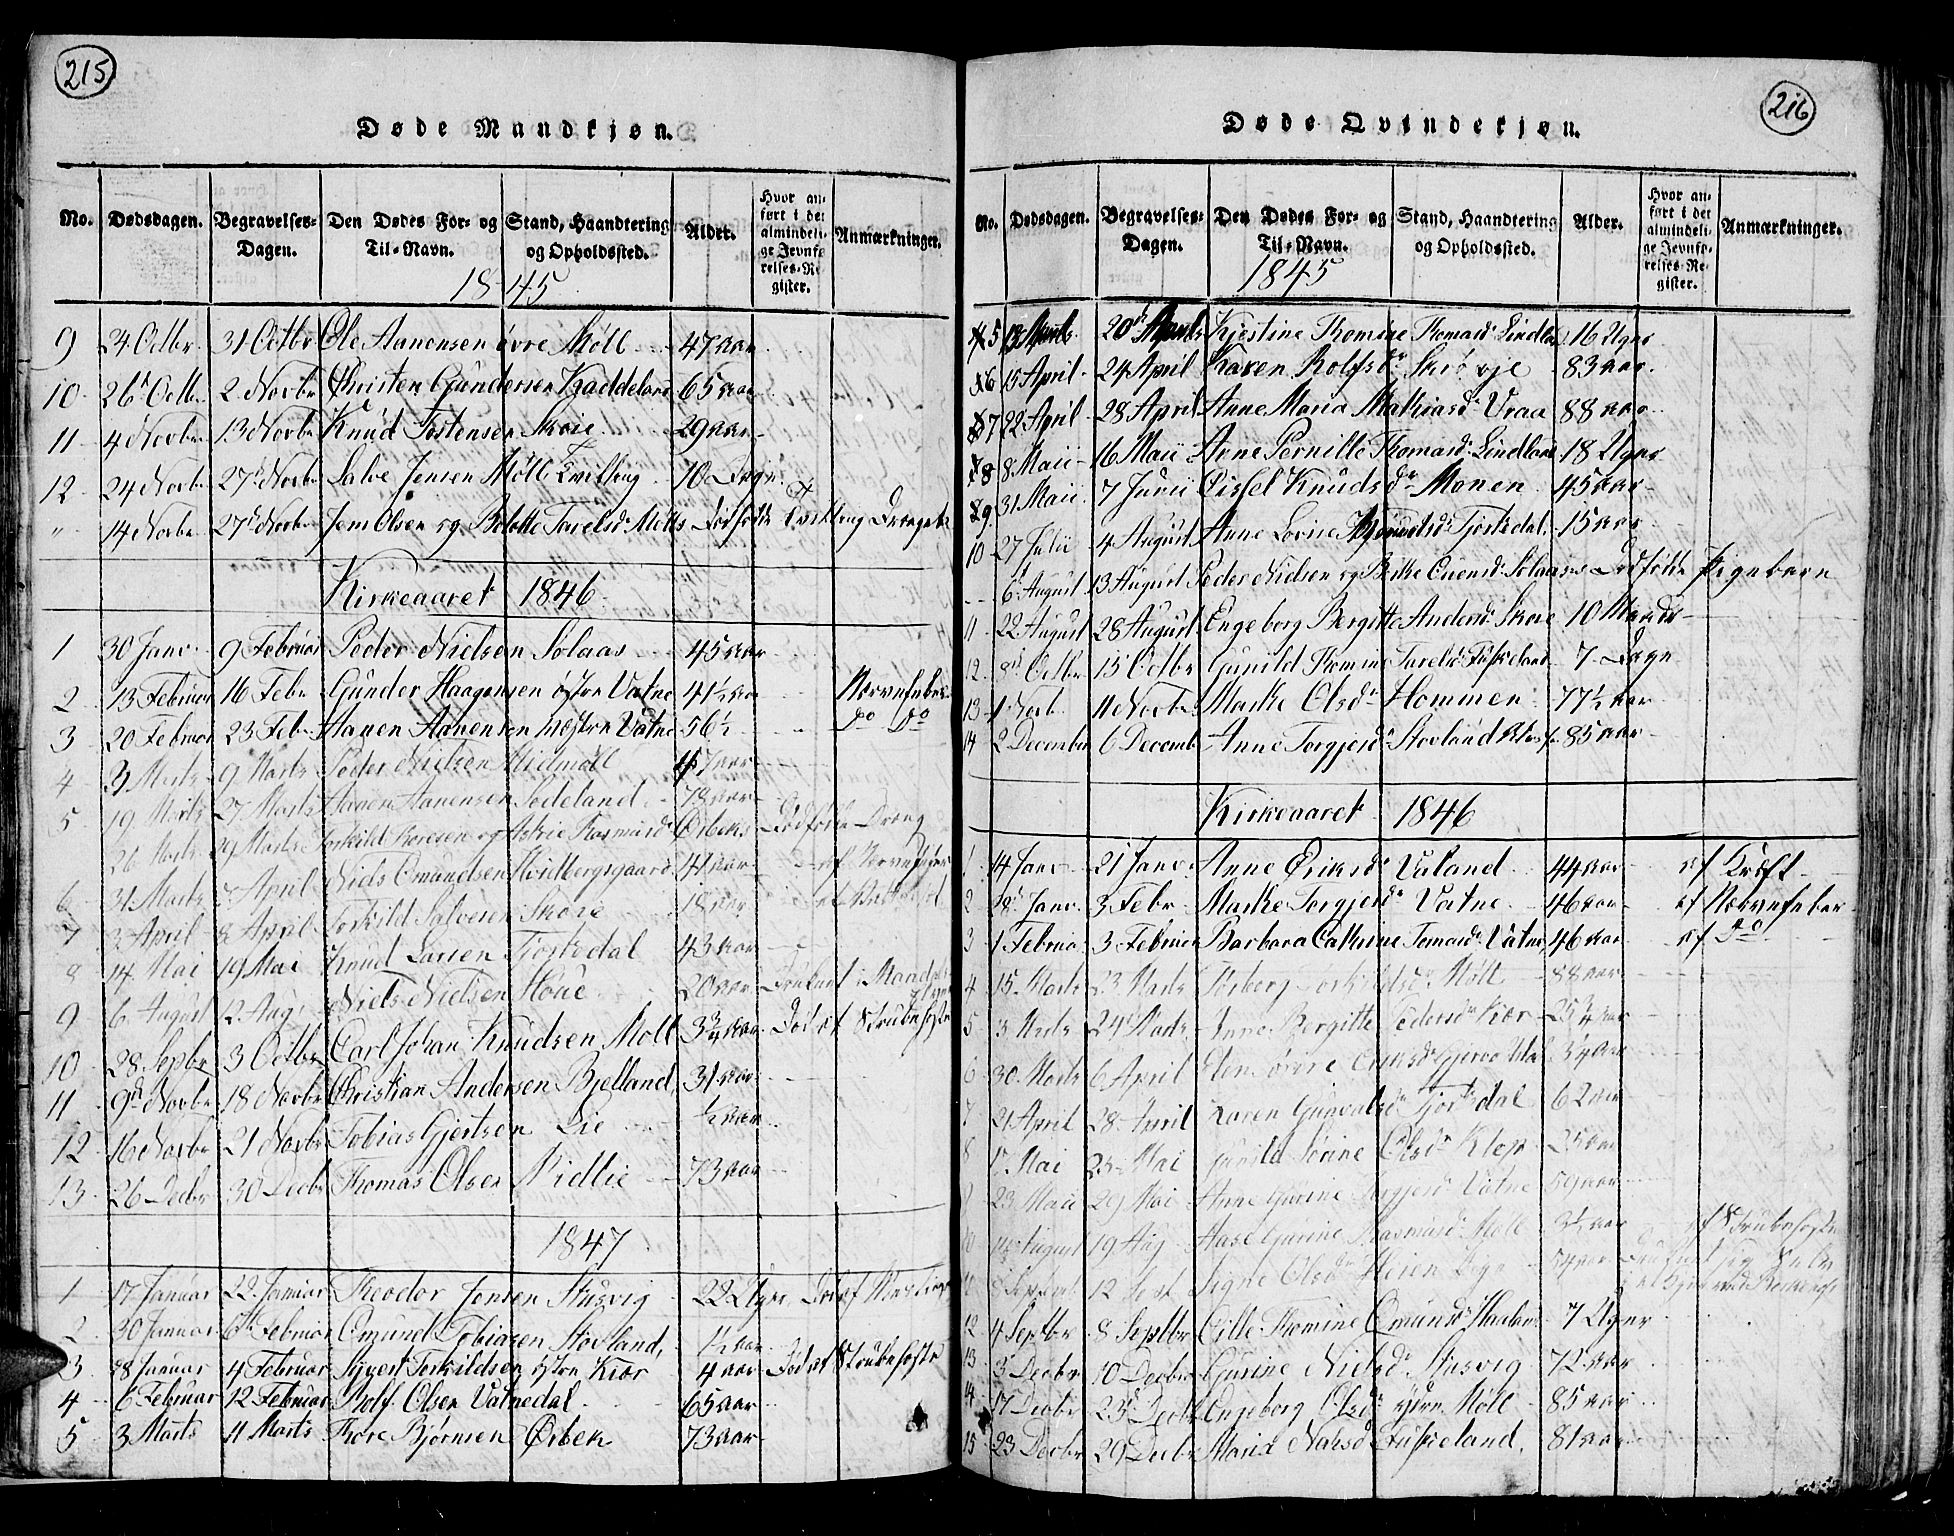 215
Døde Mandkjøn.
No. Dødsdagen. Begravelses-Dagen. Den Dødes For- og Til-Navn. Stand, Haandtering og Opholdssted. Aldet. Hvor anført i det almindelige Jevnførelses-Register. Anmærkninger.
1845
9 24 Octbr 31 Octbr Ole Aanonsen øvre Møll 47 aar
10 26d Octbr 2 Novbr Christen Gundersen Kaddeland 65 aar
11 4 Novbr 13 Novbr Knud Tostensen Skoie 29 aar
12 24 Novbr 27d Novbr Salve Jensen Møll Tvilling 10 Dage
" 14 Novbr 27d Novbr Jens Olsen og Berthe Tarelsd Mølls Dødfødte Et Tvilling Drengeb.
Kirkeaaret 1846
1 30 Janv. 9 Februar Peder Nielsen Solaas 45 aar
2 13 Februar 16 Febr Gunder Haagensen østre Vatne 41½ aar Nervefeber
3 20 Februar 23 Febr Aanen Aanensen vestre Vatne 56½ " Do Do
4 3 Marts 9 Marts Peder Nielsen Midmøll 7 aar
5 19 Marts 27 Marts Aanen Aanensen Sodeland 78 aar
26 Marts 29 Marts Torkild Boresen og Astrie Rasmusd Ørbeks Dødfødte Dreng
6 31 Marts 7 April Niels Omundsen Hvidbergsgaard 41 aar af Nervefeber
7 3 April 8 April Torkild Salvesen Skore 18 aar
8 14 Mai 19 Mai Knud Larsen Tjorkedal 43 aar
9 6 August 12 Aug. Niels Nielsen Houe 20 aar Druknet i Mandal
10 28 Sepbr 3 Octbr Carl Johan Knudsen Moll 3¾ aar Død af Strubehoste
11 9d Novbr 18 Novbr Christian Andersen Bjelland 31 aar
12 16 Novbr 21 Novbr Tobias Gjertsen Lie ½ aar
13 26 Decbr 30 Decbr Thomas Olsen Nidlie 73 aar
1847
1 17 Januar 22 Januar Theodor Jensen Stusvig 22 Uger Død af
2 30 Januar 6 Februar Omund Tobiasen Stovland 1½ aar
3 28 Januar 4 Februar Syvert Torkildsen østre Kior 4 aar Død af Strubehoste
4 6 Februar 12 Februar Rolf Olsen Vatnedal 65 aar
5 3 Marts 11 Marts Thore Bjørnsen Ørbek 73 aar
216
Døde Qvindekjøn.
No. Dødsdagen. Begravelses-Dagen. Den Dødes For- og Til-Navn. Stand, Haandtering og Opholdssted. Alder. Hvor anført i det almindelige Jevnførelses-Register. Anmærkninger.
1845
5 13 April 20d April Kjestine Thomine Thomasd Lindland 16 Uger
6 15 April 24 April Karen Rolfsdr Skiøvje 83 aar
7 22 April 28 April Anne Maria Mathiasd Vraa 88 aar
8 8 Maii 16 Maii Anne Pernille Thomasd Lindland 18 Uger
9 31 Maii 7 Junii Sissel Knudsdr Monen 45 aar
10 27 Julii 4 August Anne Lovise Tjorkedal 15 aar
6 August 13 August Peder Nielsen og Berthe Evensd Solaas's Dødfødte Pigebarn
11 22 August 28 August Engeborg Bergitte Andersd Skore 10 Maaneder
12 8d Octbr 15 Octbr Gunild Thomine Tarelsd Fuskeland 7 Dage
13 1 Novb. 11 Novbr Marthe Olsdr Hommen 77½ aar
14 2 December 6 Decemb Anne Torgjersdr Stovland 85 aar
Kirkeaaret 1846
1 14 Janv 21 Janv Anne Eriksdr Valand 44 aar af Kræft
2 28 Janv 3 Febr Marthe Torgjersdr Vatne 46 aar af Nervefeber
3 1 Februar 3 Februar Barbara Cathrine Tomasd Vatne 46 aar af Do
4 15 Marts 23 Marts Torborg Torkildsdr Møll 88 aar
5 13 Marts 24 Marts Anne Bergitte Pedersdr Kior 25¾ aar
6 30 Marts 6 April Elen Sovre Eriksd 34 aar
7 21 April 28 April Karen Gunvalsd Tjorkedal 62 aar
8 17 Mai 25 Mai Gunild Sovine Olsdr Klep 25 aar
23 Maii 29 Mai Anne Gurine Torgjersd Vatne 59 aar
August 19 Aug Aase Gurine Rasmusd Moll 3½ aar af Strubehoste
8 Septemb 12 Sept Signe Olsdr Heien 54 aar
12 4 Septbr 8 Septbr Cille Thomine Omunsd 7 Uger
13 3 Decbr 10 Decbr Gurine Nielsdr Stusvig 72 aar
14 17 Decbr 23d Decbr Engeborg Olsdr øvre Møll 85 aar
15 23 Decbr 29 Decbr Maria Nielsd Fuskeland 81 aar